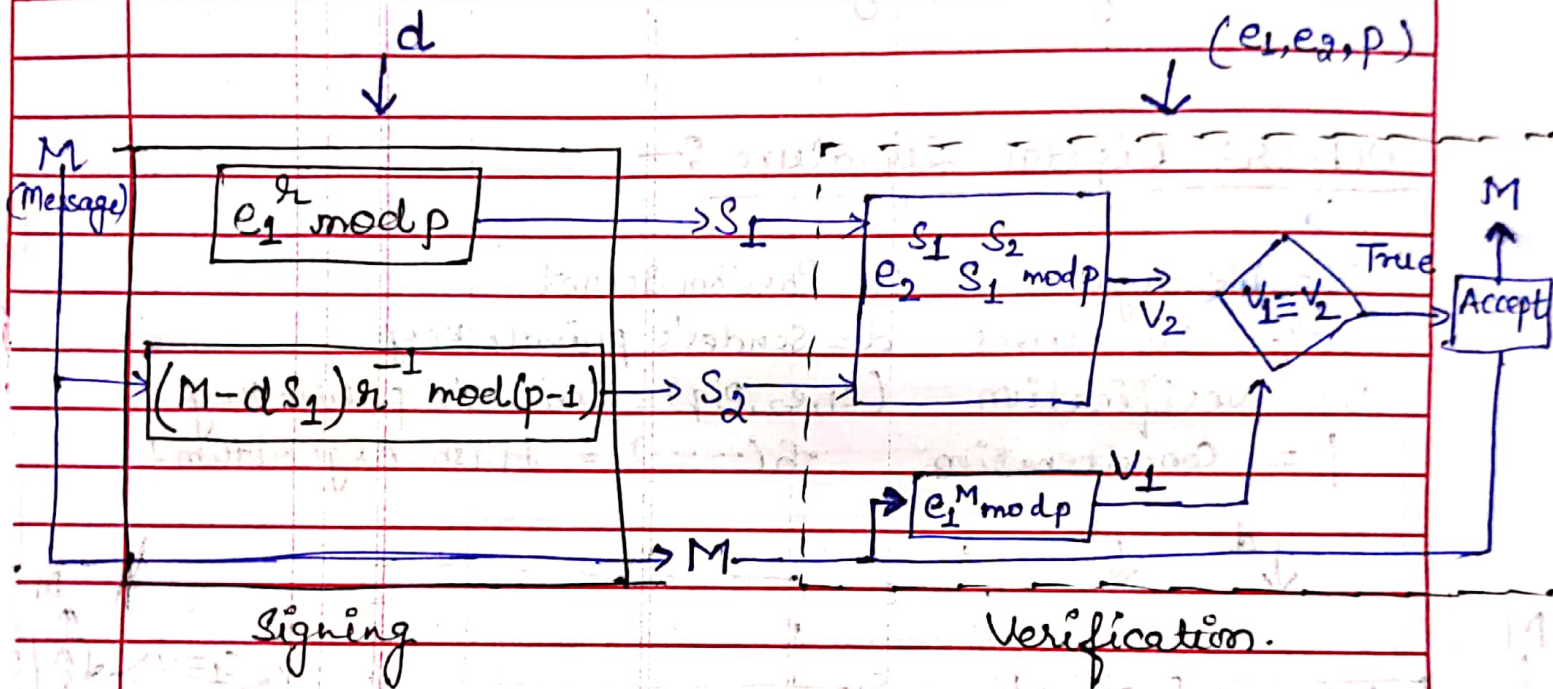 d
(e₁,e₂,p)
M
(Message)
e₁^r mod p
S₁
e₂^S₁ S₁^S₂ mod p
V₂
V₁=V₂
True
M
Accept
(M-dS₁)r⁻¹ mod(p-1)
S₂
e₁^M mod p
V₁
M
Signing
Verification.